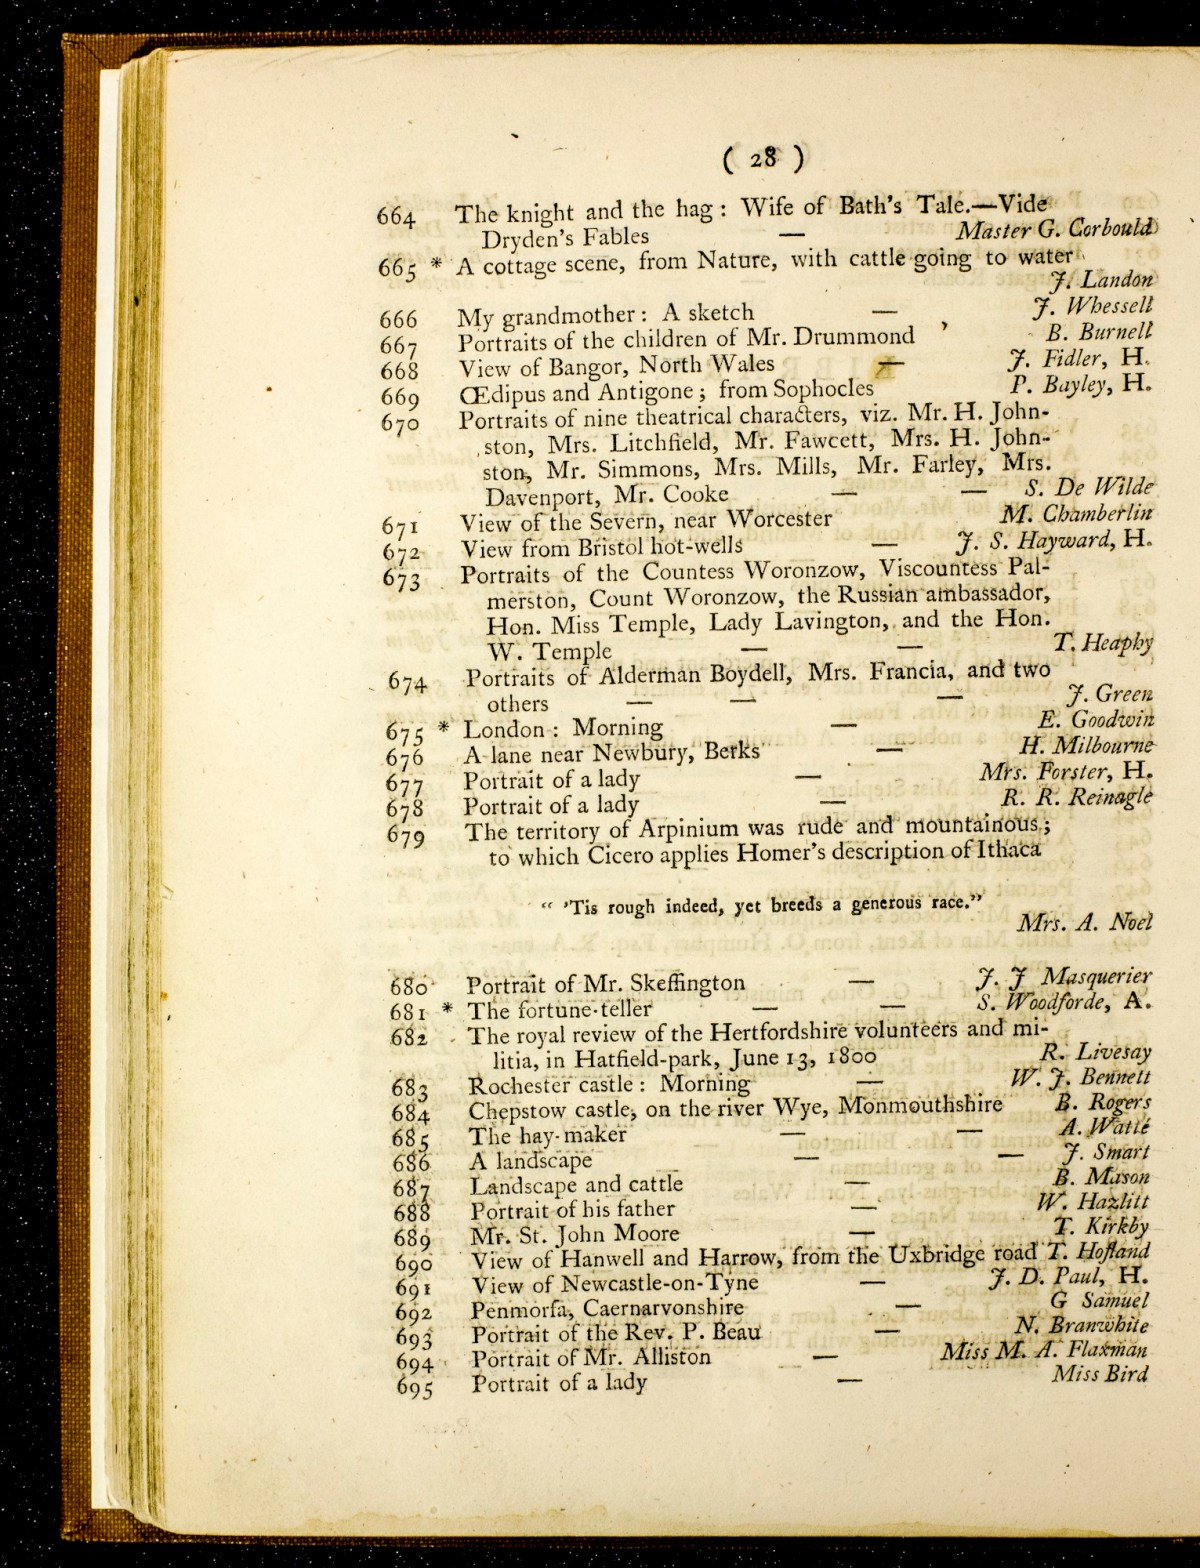 ( 28 )
664 The knight and the hag: Wife of Bath's Tale.—Vide
Dryden's Fables — Master G. Corbould
665 * A cottage scene, from Nature, with cattle going to water
J. Landon
666 My grandmother: A sketch — J. Whessell
667 Portraits of the children of Mr. Drummond B. Burnell
668 View of Bangor, North Wales — J. Fidler, H.
669 Œdipus and Antigone; from Sophocles P. Bayley, H.
670 Portraits of nine theatrical characters, viz. Mr. H. John-
ston, Mrs. Litchfield, Mr. Fawcett, Mrs. H. John-
ston, Mr. Simmons, Mrs. Mills, Mr. Farley, Mrs.
Davenport, Mr. Cooke — — S. De Wilde
671 View of the Severn, near Worcester M. Chamberlin
672 View from Bristol hot-wells — J. S. Hayward, H.
673 Portraits of the Countess Woronzow, Viscountess Pal-
merston, Count Woronzow, the Russian ambassador,
Hon. Miss Temple, Lady Lavington, and the Hon.
W. Temple — — T. Heaphy
674 Portraits of Alderman Boydell, Mrs. Francia, and two
others — — — J. Green
675 * London: Morning — E. Goodwin
676 A lane near Newbury, Berks — H. Milbourne
677 Portrait of a lady — Mrs. Forster, H.
678 Portrait of a lady — R. R. Reinagle
679 The territory of Arpinium was rude and mountainous;
to which Cicero applies Homer's description of Ithaca
" 'Tis rough indeed, yet breeds a generous race."
Mrs. A. Noel
680 Portrait of Mr. Skeffington — J. J Masquerier
681 * The fortune-teller — — S. Woodforde, A.
682 The royal review of the Hertfordshire volunteers and mi-
litia, in Hatfield-park, June 13, 1800 R. Livesay
683 Rochester castle: Morning — W. J. Bennett
684 Chepstow castle, on the river Wye, Monmouthshire B. Rogers
685 The hay-maker — — A. Watté
686 A landscape — — J. Smart
687 Landscape and cattle — B. Mason
688 Portrait of his father — W. Hazlitt
689 Mr. St. John Moore — T. Kirkby
690 View of Hanwell and Harrow, from the Uxbridge road T. Hofland
691 View of Newcastle-on-Tyne — J. D. Paul, H.
692 Penmorfa, Caernarvonshire — G Samuel
693 Portrait of the Rev. P. Beau — N. Branwhite
694 Portrait of Mr. Alliston — Miss M. A. Flaxman
695 Portrait of a lady — Miss Bird